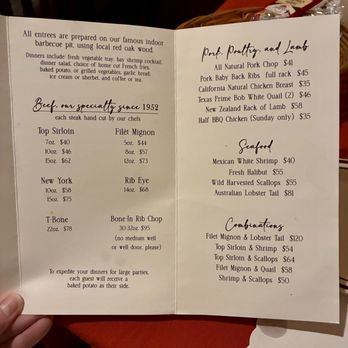 All entrees are prepared on our famous indoor
barbecue pit, using local red oak wood.
Dinners include: fresh vegetable tray, bay shrimp cocktail,
dinner salad, choice of home cut French fries,
baked potato, or grilled vegetables, garlic bread,
ice cream or sherbet, and coffee or tea.
Beef, our specialty since 1952
each steak hand cut by our chefs
Top Sirloin
7oz. $40
10oz. $46
15oz. $62
Filet Mignon
5oz. $44
8oz. $57
12oz. $73
New York
10oz. $58
15oz. $75
Rib Eye
14oz. $68
T-Bone
22oz. $78
Bone-In Rib Chop
30-32oz. $95
(no medium well
or well done, please)
To expedite your dinners for large parties,
each guest will receive a
baked potato as their side.
Pork, Poultry, and Lamb
All Natural Pork Chop $41
Pork Baby Back Ribs full rack $45
California Natural Chicken Breast $35
Texas Prime Bob White Quail (2) $46
New Zealand Rack of Lamb $58
Half BBQ Chicken (Sunday only) $35
Seafood
Mexican White Shrimp $40
Fresh Halibut $55
Wild Harvested Scallops $55
Australian Lobster Tail $81
Combinations
Filet Mignon & Lobster Tail $120
Top Sirloin & Shrimp $54
Top Sirloin & Scallops $64
Filet Mignon & Quail $58
Shrimp & Scallops $50